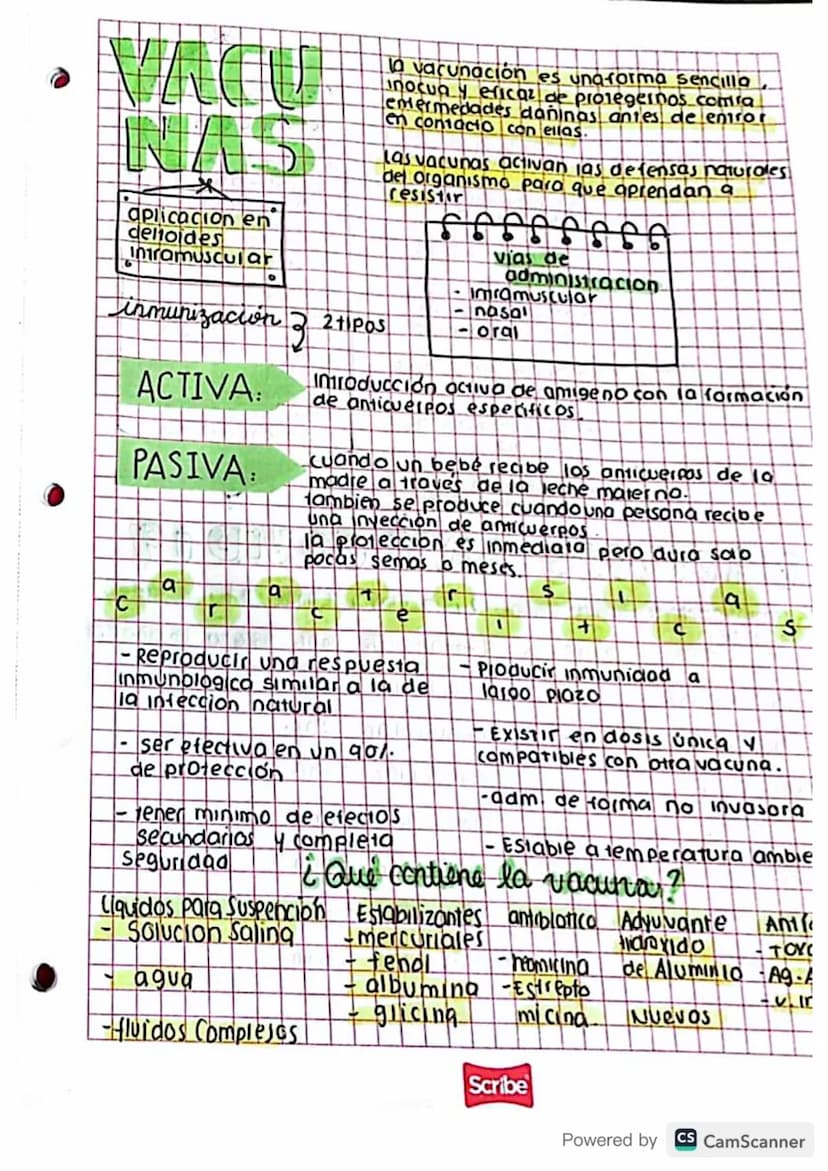 VACU
NAS
la vacunación es una forma sencilla,
inocua y eficaz de protegernos contra
enfermedades dañinas antes de entrar
en contacto con ellas.
Las vacunas activan las defensas naturales
del organismo para que aprendan a
resistir
aplicacion en
deltoides
intramuscular
vias de
administracion
- intramuscular
- nasal
- oral
inmunización } 2 tipos
ACTIVA:
introducción activa de antigeno con la formación
de anticuerpos especificos.
PASIVA:
cuando un bebé recibe los anticuerpos de la
madre a traves de la leche materna.
tambien se produce cuando una persona recibe
una inyección de anticuerpos.
la protección es inmediata pero dura solo
pocas semas o meses.
caracteristicas
- Reproducir una respuesta
inmunologica similar a la de
la infeccion natural
- ser efectiva en un 90%.
de protección
- tener minimo de efectos
secundarios y completa
seguridad
- Producir inmunidad a
largo plazo
- Existir en dosis única y
compatibles con otra vacuna.
- adm. de forma no invasora
- Estable a temperatura ambie
¿Qué contiene la vacuna?
Liquidos para suspención
- Solucion Salina
- agua
- fluidos Complejos
Estabilizantes
- mercuriales
- fenol
- albumina
- glicina
antibiotico
- neomicina
- Estrepto
micina
Adyuvante
hidroxido
de Aluminio
Nuevos
- Ag.
Scribe
Powered by CS CamScanner